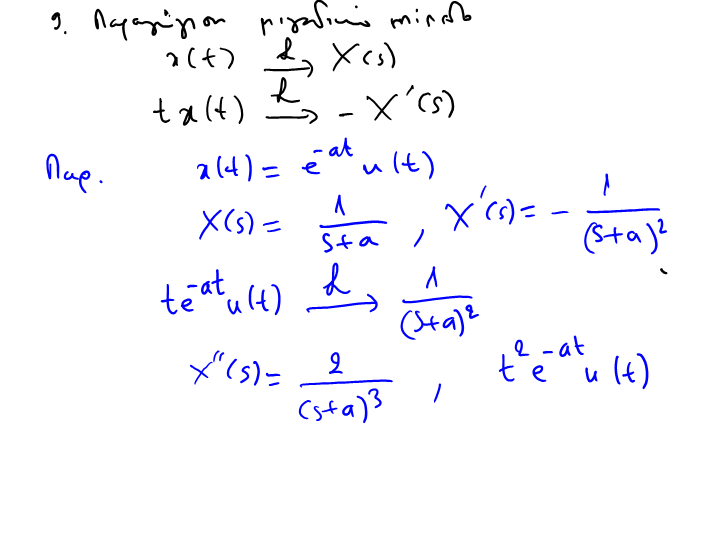 9. Παραγώγιση μιγαδικού
x(t) ℒ→ X(s)
t x(t) ℒ→ - X'(s)
Παρ. x(t) = e^{-at} u(t)
X(s) = 1/(s+a) , X'(s) = - 1/(s+a)^2
t e^{-at} u(t) ℒ→ 1/(s+a)^2
X''(s) = 2/(s+a)^3 , t^2 e^{-at} u(t)